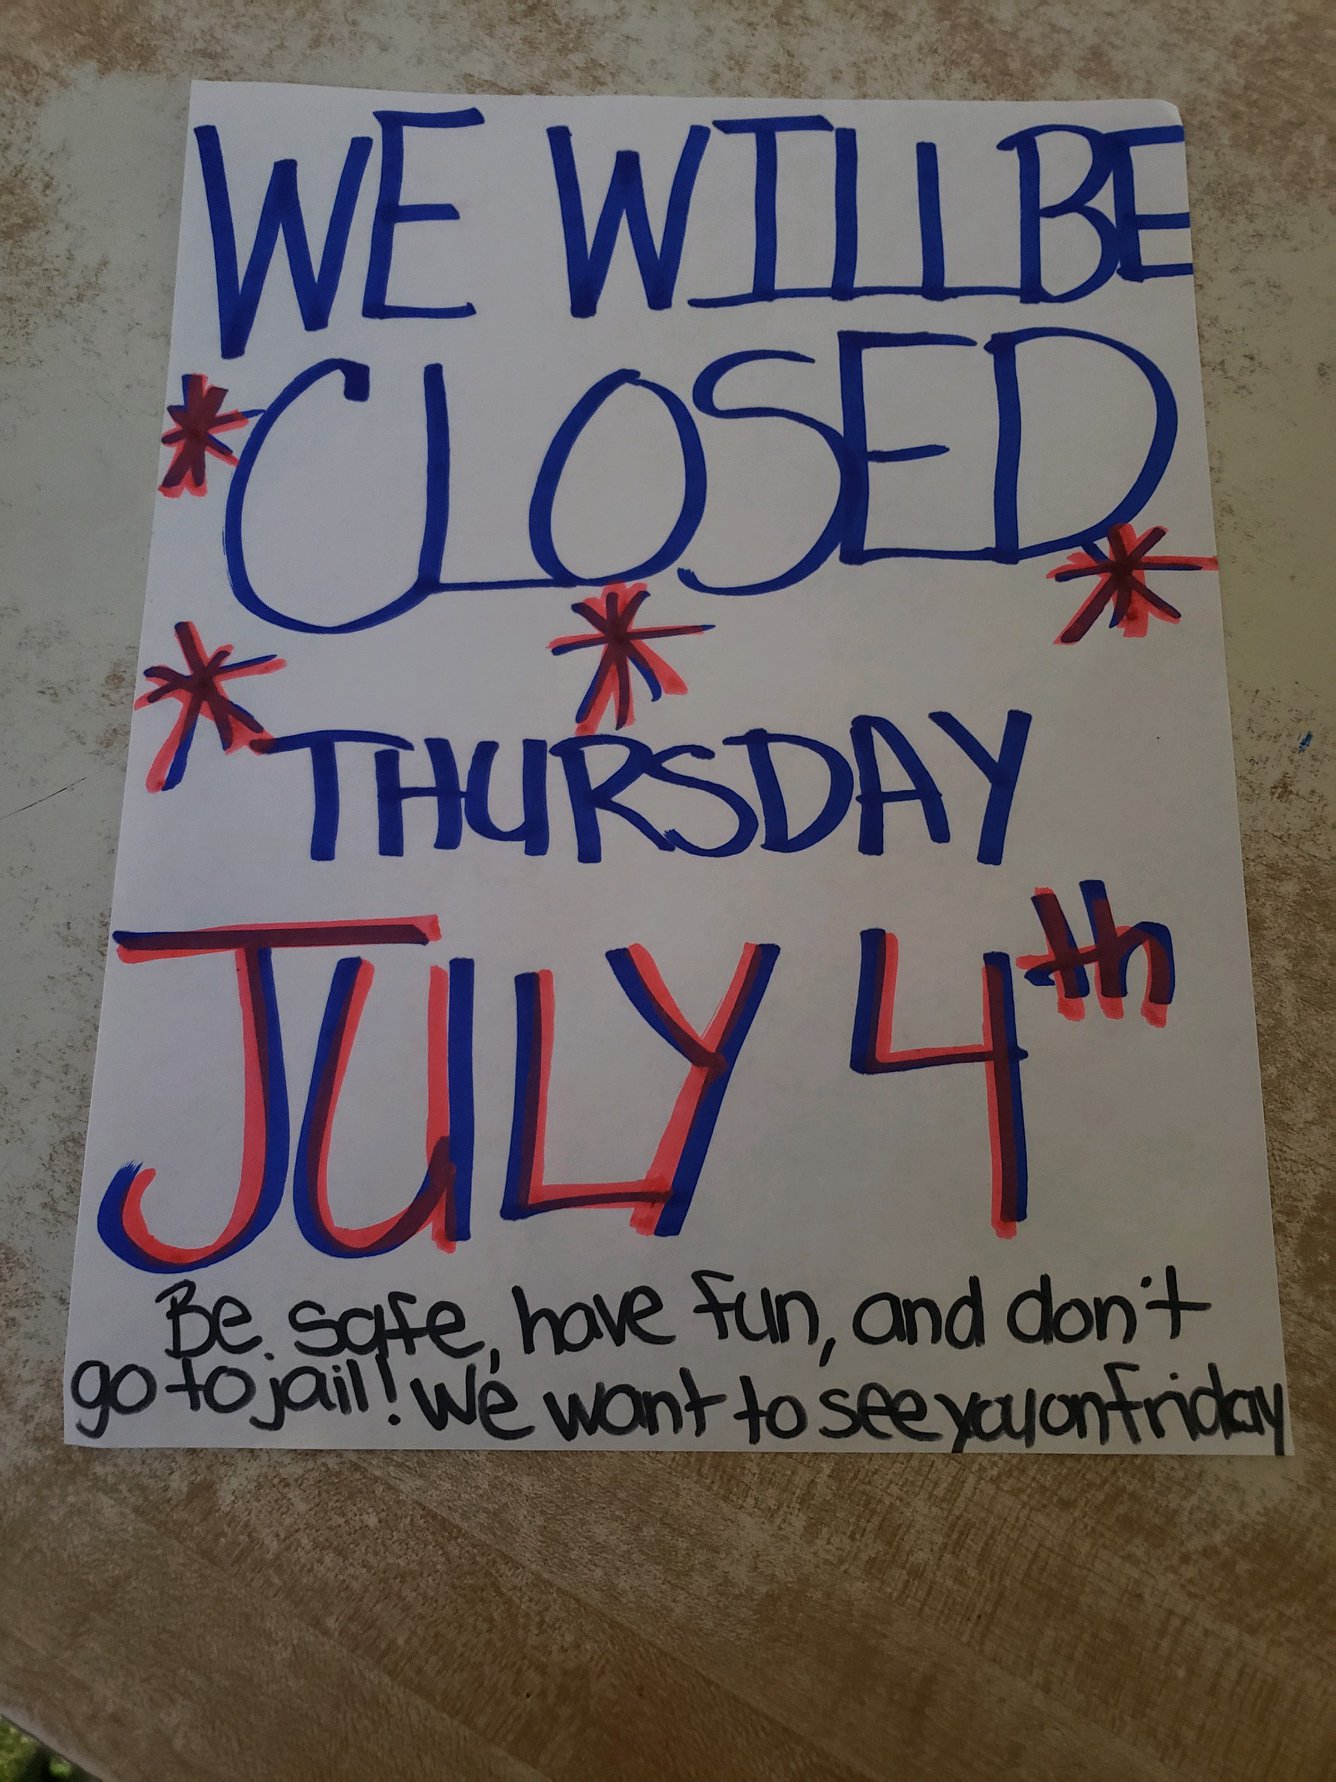 WE WILL BE
CLOSED
THURSDAY
JULY 4th
Be safe, have fun, and don't
go to jail! We want to see you on friday